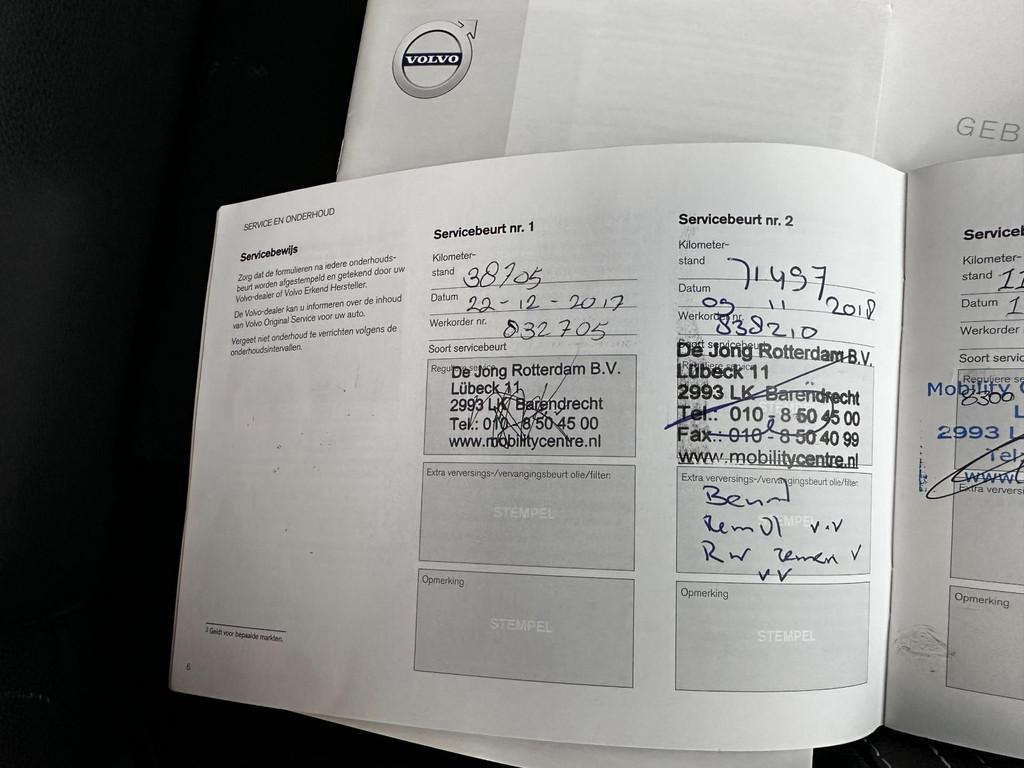 VOLVO
GEB
SERVICE EN ONDERHOUD
Servicebewijs
Zorg dat de formulieren na iedere onderhouds-
beurt worden afgestempeld en getekend door uw
Volvo-dealer of Volvo Erkend Hersteller.
De Volvo-dealer kan u informeren over de inhoud
van Volvo Original Service voor uw auto.
Vergeet niet onderhoud te verrichten volgens de
onderhoudsintervallen.
3 Geldt voor bepaalde markten.
6
Servicebeurt nr. 1
Kilometer-
stand 38705
Datum 22-12-2017
Werkorder nr. 832705
Soort servicebeurt
Reguliere service
De Jong Rotterdam B.V.
Lübeck 11
2993 LK Barendrecht
Tel.: 010 - 8 50 45 00
www.mobilitycentre.nl
Extra verversings-/vervangingsbeurt olie/filter:
STEMPEL
Opmerking
STEMPEL
Servicebeurt nr. 2
Kilometer-
stand 71497
Datum 09 11 2018
Werkorder nr. 838210
Soort servicebeurt
De Jong Rotterdam B.V.
Lübeck 11
2993 LK Barendrecht
Tel.: 010 - 8 50 45 00
Fax.: 010 - 8 50 40 99
www.mobilitycentre.nl
Extra verversings-/vervangingsbeurt olie/filter:
STEMPEL
v.v
Rw remen v
vv
Opmerking
STEMPEL
Serviceb
Kilometer-
stand 11
Datum 1
Werkorder
Soort servic
Reguliere se
8300
Mobility
L
2993 L
Tel
www
Extra versversi
Opmerking